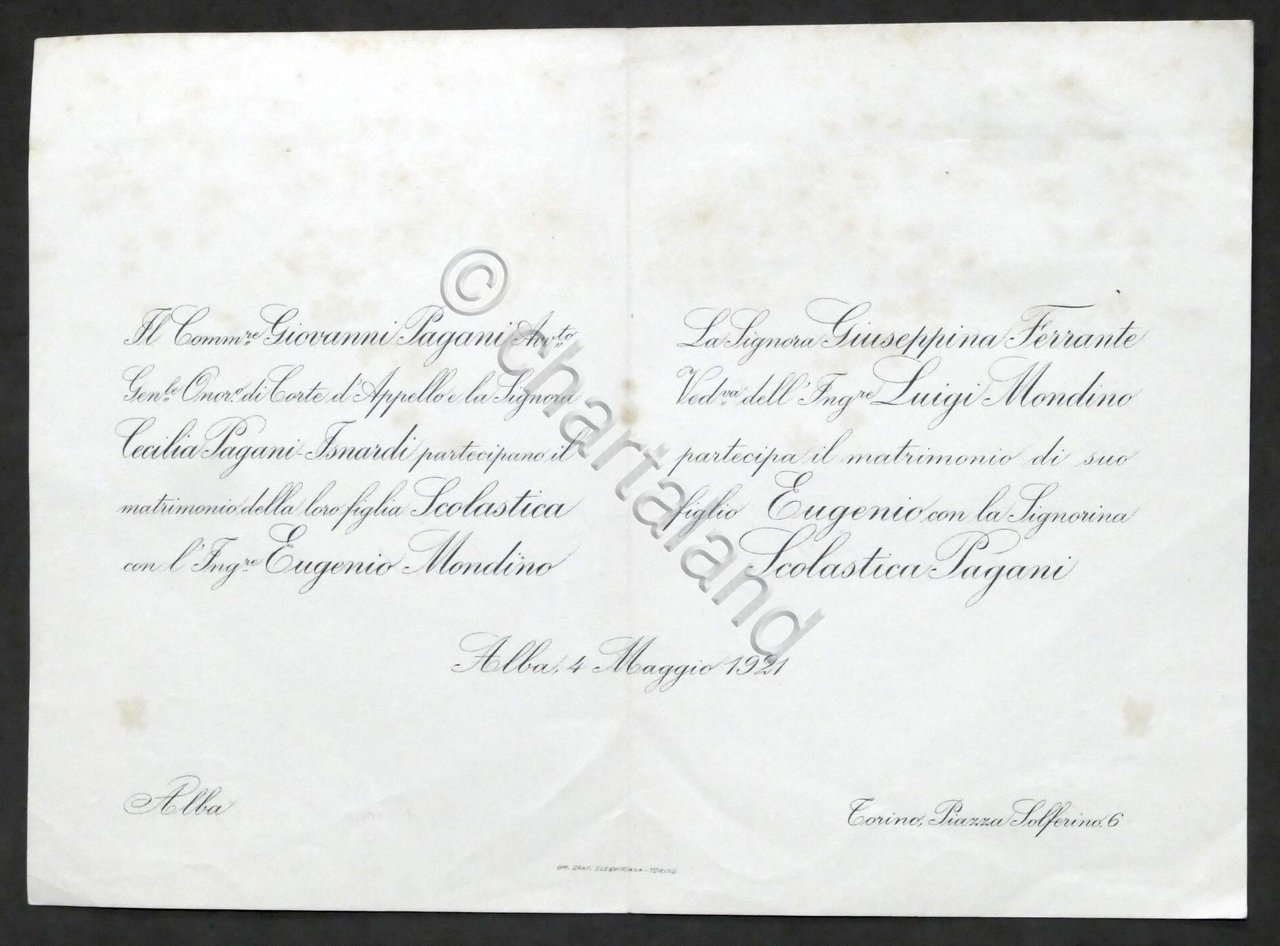 Il Comm.re Giovanni Pagani Avv.to
Gen.le Onor.o di Corte d'Appello e la Signora
Cecilia Pagani-Isnardi partecipano il
matrimonio della loro figlia Scolastica
con l'Ing.re Eugenio Mondino
La Signora Giuseppina Ferrante
Ved.va dell'Ing.re Luigi Mondino
partecipa il matrimonio di suo
figlio Eugenio con la Signorina
Scolastica Pagani
Alba, 4 Maggio 1921
Alba
Torino, Piazza Solferino, 6
OFF. GRAF. -TORINO
© chartaland